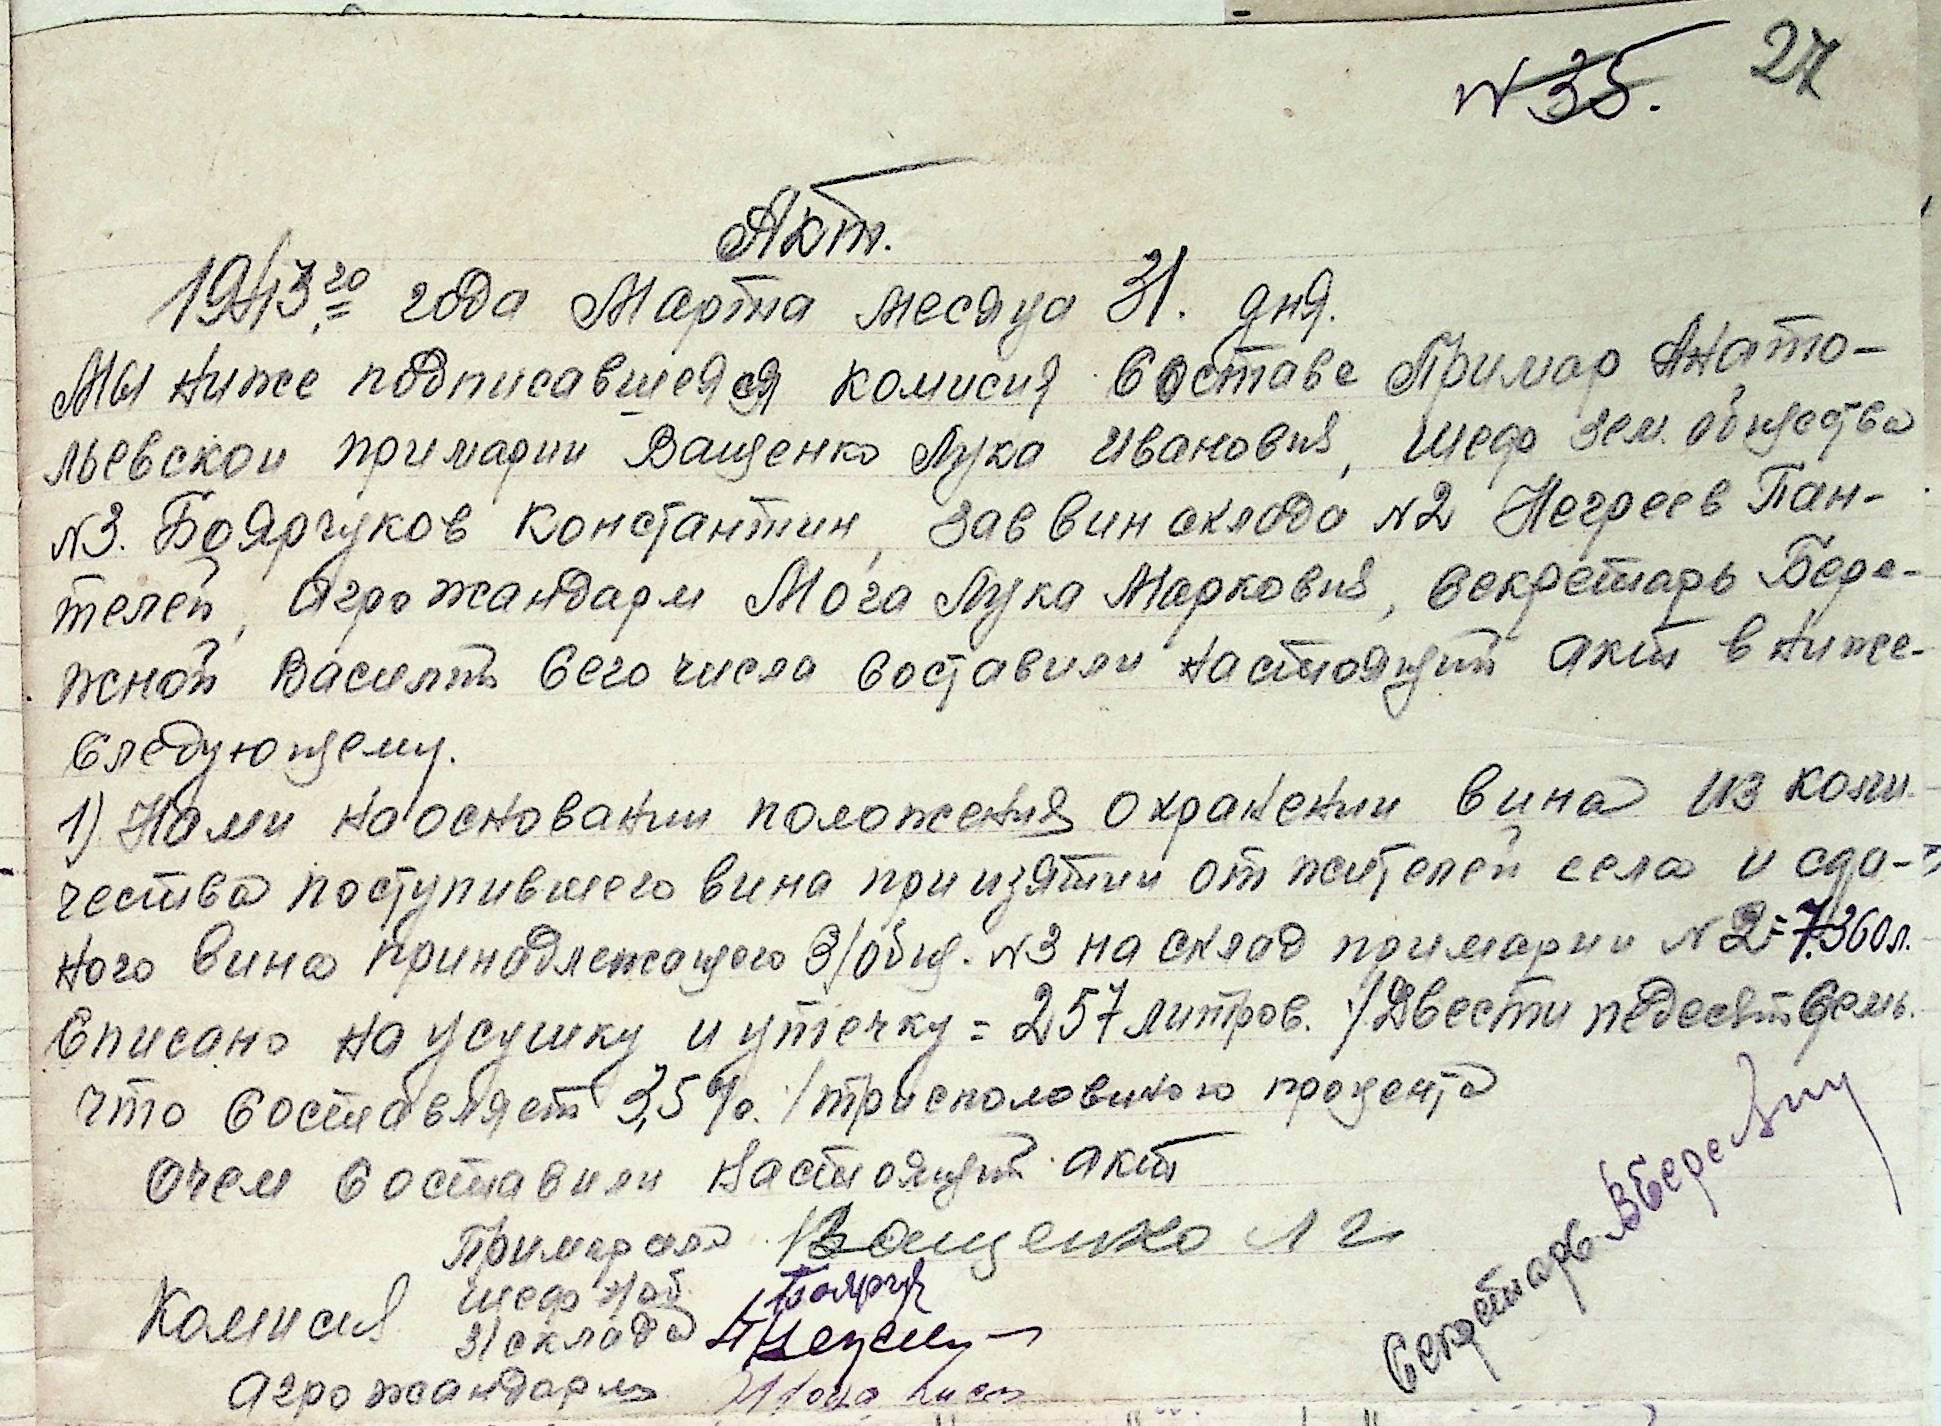 N 35. 27
Акт.
1943го года Марта месяца 31. дня.
Мы ниже подписавшеяся комисия Составе Примар Анато-
льевской примарии Ващенко Лука Иванович, шеф зем. общества
N3. Боярчуков Константин, Зав вин склада N2 Негреев Пан-
телей, Агро жандарм Мога Лука Маркович, Секретарь Бере-
жной Василий Сего числа Составили настоящий акт в ниже-
Следующему.
1) Нами на основании положения охранении вина из коли
чества поступившего вина приизятии от жителей села и сда-
ного вина принадлежащего З/общ. N3 на склад примарии N2=7.360л.
Списано на усушку и утечку = 257 литров. /Двести педесят Семь.
что Составляет 3,5%. /трисполовиною процента
Очем Составили настоящий акт
Примар села Ващенко Л
Шеф з/об Боярчук
Комисия З/склада
Агро жандарм Мога
Секретарь ВБереж